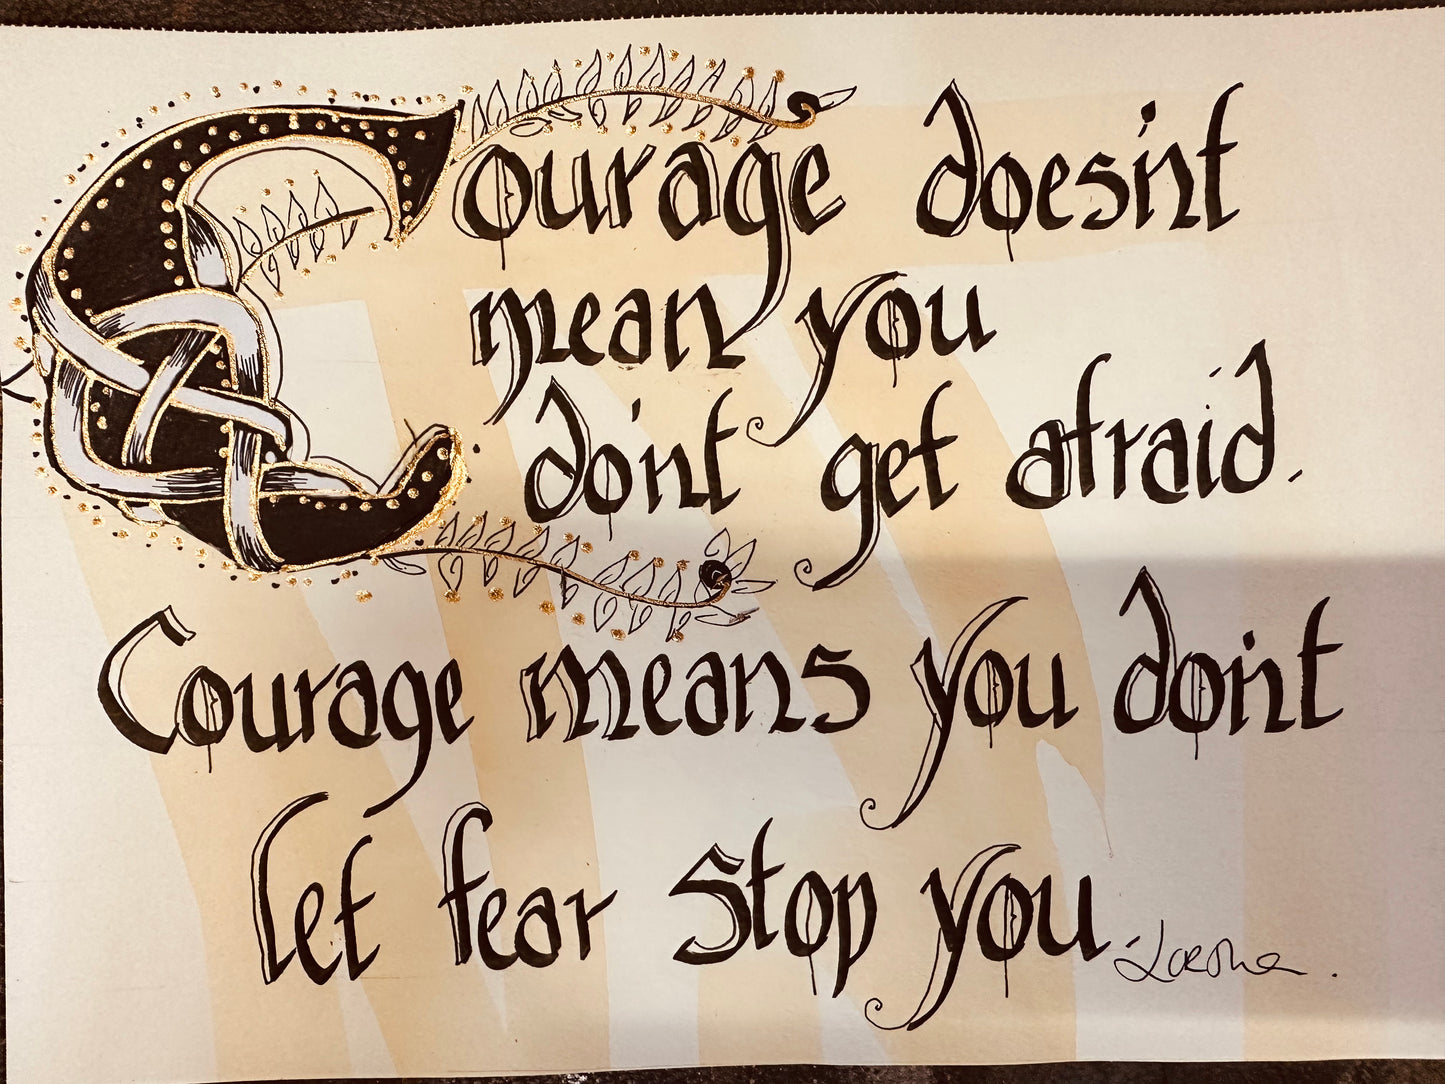 Courage doesn't
mean you
don't get afraid.
Courage means you don't
let fear stop you